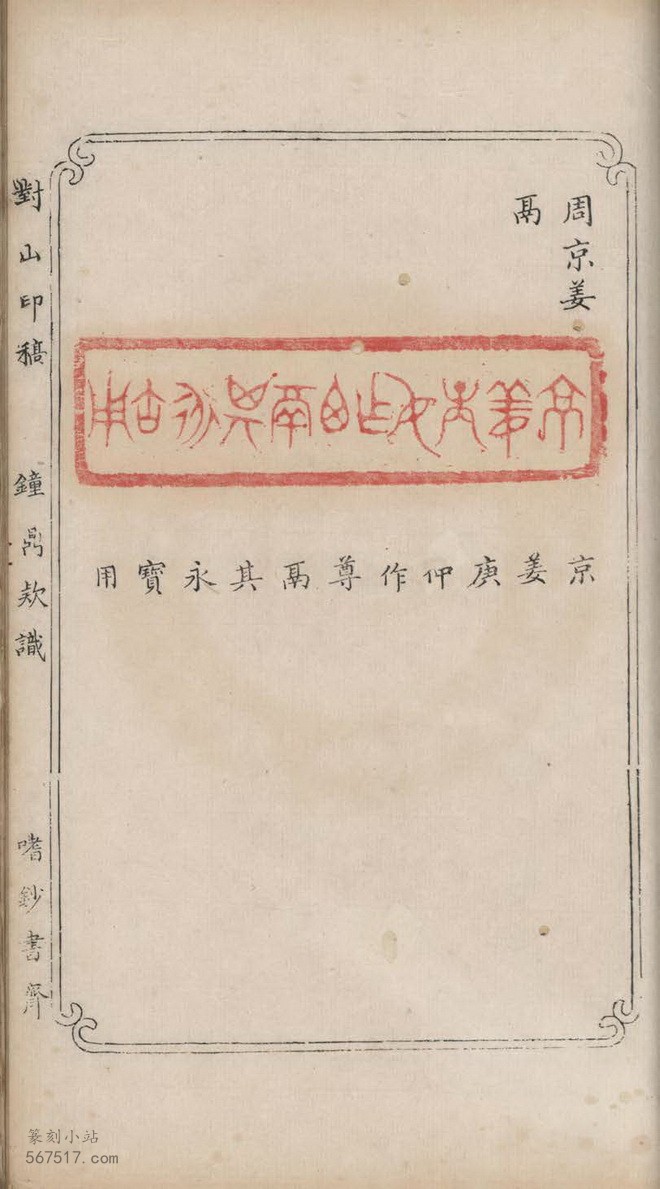 周京姜
鬲
京姜庚仲作尊鬲其永寶用
對山印稿 鐘鼎款識 嗜鈔書齋
篆刻小站
567517.com